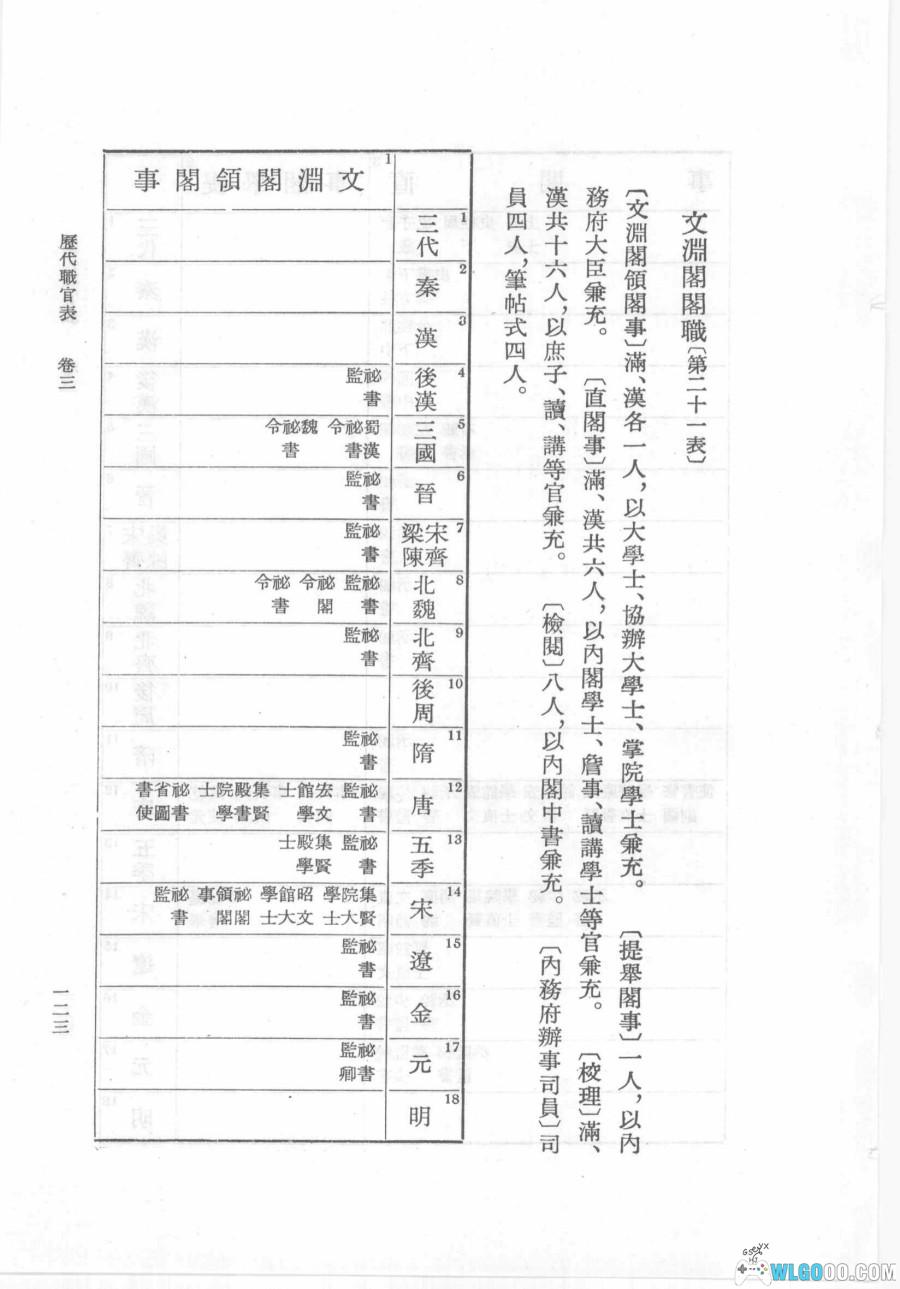 文淵閣閣職〔第二十一表〕
〔文淵閣領閣事〕滿、漢各一人，以大學士、協辦大學士、掌院學士兼充。　〔提舉閣事〕一人，以內
務府大臣兼充。　〔直閣事〕滿、漢共六人，以內閣學士、詹事、讀講學士等官兼充。　〔校理〕滿、
漢共十六人，以庶子、讀、講等官兼充。　〔檢閱〕八人，以內閣中書兼充。　〔內務府辦事司員〕司
員四人，筆帖式四人。
1 文淵閣領閣事
1 三代
2 秦
3 漢
4 後漢 祕書監
5 三國 蜀漢祕書令 魏祕書令
6 晉 祕書監
7 宋齊梁陳 祕書監
8 北魏 祕書監 祕閣令 祕書令
9 北齊 祕書監
10 後周
11 隋 祕書監
12 唐 祕書監 宏文館學士 集賢殿書院學士 祕書省圖書使
13 五季 祕書監 集賢殿學士
14 宋 集賢院大學士 昭文館大學士 祕閣領閣事 祕書監
15 遼 祕書監
16 金 祕書監
17 元 祕書監卿
18 明
歷代職官表　卷三
一二三
WLGOOO.COM